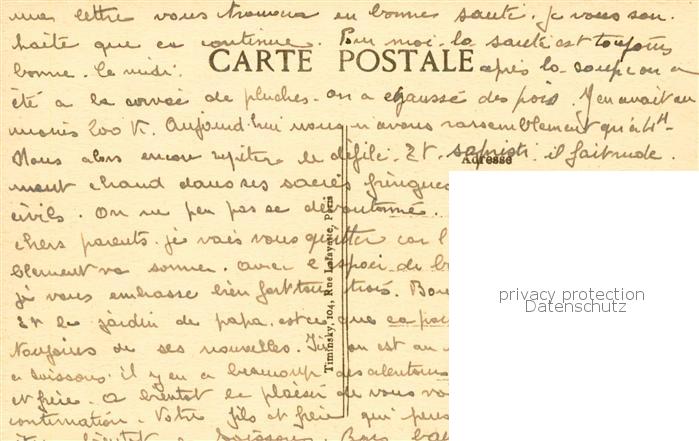 ma lettre vous trouvera en bonne santé. je vous sou
haite que ca continue. Pour moi la santé est toujours
bonne. Ce midi. après la soupe on a
CARTE POSTALE
été à la corvée de pluches. on a écaussé des pois. Y en avait au
moins 200 K. Aujourd'hui nous n'avons rassemblement qu'à 4H
Nous alors encore répéter le défilé. Et sapristi il fait rude
Adresse
ment chaud dans ses sacrés fringues
civils. On ne peu pas se déboutonné.
chers parents. je vais vous quitter car l
blement va sonner. avec l'espoir de b
je vous embrasse bien fort tous trois. Bon
Et le jardin de papa. est ce que ca pou
Toujours de ses nouvelles. Ici on est au
a soissons. il y en a beaucoup des alentours
et frère. A bientôt le plaisir de vous
continuation. Votre fils et frère qui pense
bientôt Soissons. Bons bai
Timinsky, 104, Rue Lafayette, Paris
privacy protection
Datenschutz